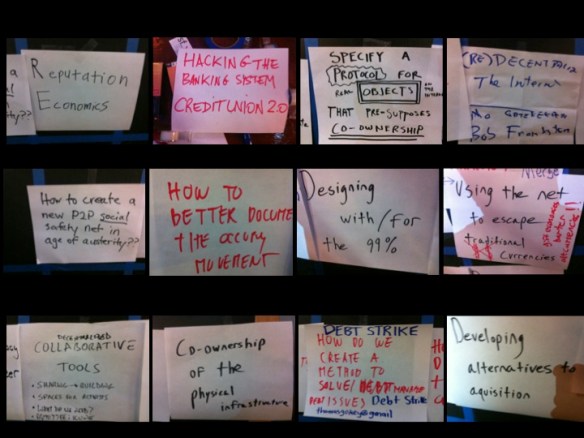 Reputation
Economics
HACKING THE
BANKING SYSTEM
CREDIT UNION 2.0
SPECIFY A
PROTOCOL FOR
REAL OBJECTS
THAT PRE-SUPPOSES
CO-OWNERSHIP
(RE)DECENTRALIZ
The Intern
Bob Frankston
How to create a
new P2P social
safety net in
age of austerity??
HOW TO
BETTER DOCUME
THE OCCUPY
MOVEMENT
Designing
with/for
the 99%
Merge
Using the net
to escape
traditional
currencies
DECENTRALIZED
COLLABORATIVE
TOOLS
Co-ownership
of the
physical
infrastructure
DEBT STRIKE
HOW DO WE
CREATE A
METHOD TO
SOLVE/ MANAGE
DEBT ISSUES) Debt Strike
Developing
alternatives to
aquisition